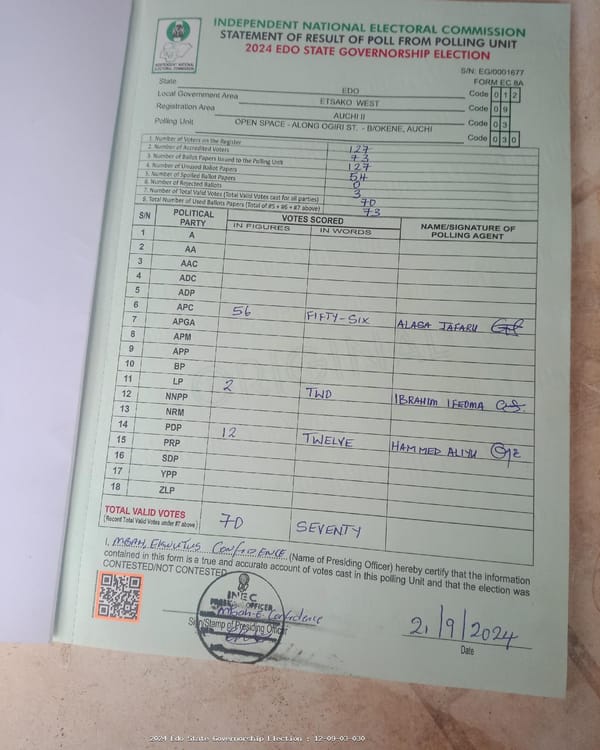 INDEPENDENT NATIONAL ELECTORAL COMMISSION
STATEMENT OF RESULT OF POLL FROM POLLING UNIT
2024 EDO STATE GOVERNORSHIP ELECTION
INDEPENDENT NATIONAL ELECTORAL COMMISSION
S/N: EG/0001677
FORM EC 8A
State EDO Code 012
Local Government Area ETSAKO WEST Code 09
Registration Area AUCHI II Code 03
Polling Unit OPEN SPACE - ALONG OGIRI ST. - B/OKENE, AUCHI Code 030
1. Number of Voters on the Register 127
2. Number of Accredited Voters 73
3. Number of Ballot Papers Issued to the Polling Unit 127
4. Number of Unused Ballot Papers 54
5. Number of Spoiled Ballot Papers 0
6. Number of Rejected Ballots 3
7. Number of Total Valid Votes (Total Valid Votes cast for all parties) 70
8. Total Number of Used Ballots Papers (Total of #5 + #6 + #7 above) 73
S/N POLITICAL PARTY VOTES SCORED NAME/SIGNATURE OF POLLING AGENT
IN FIGURES IN WORDS
1 A
2 AA
3 AAC
4 ADC
5 ADP
6 APC 56 FIFTY-SIX ALASA JAFARU
7 APGA
8 APM
9 APP
10 BP
11 LP 2 TWO IBRAHIM IFEOMA
12 NNPP
13 NRM
14 PDP 12 TWELVE HAMMED ALIYU
15 PRP
16 SDP
17 YPP
18 ZLP
TOTAL VALID VOTES 70 SEVENTY
(Record Total Valid Votes under #7 above)
I, MBAH, CONFIDENCE (Name of Presiding Officer) hereby certify that the information
contained in this form is a true and accurate account of votes cast in this polling Unit and that the election was
CONTESTED/NOT CONTESTED
INEC
OFFICER
Mbah E. Confidence
Sign/Stamp of Presiding Officer
21/9/2024
Date
2024 Edo State Governorship Election : 12-09-03-030